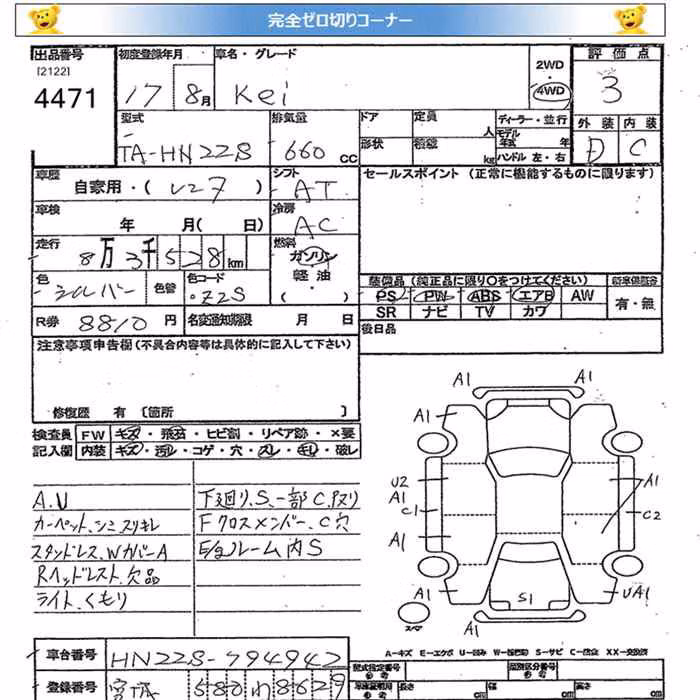 完全ゼロ切りコーナー
出品番号 初度登録年月 車名・グレード 2WD・4WD 評価点
[2122]
4471 17 8月 Kei 3
型式 排気量 ドア 定員 人 ディーラー・並行 外装 内装
TA-HN22S 660 CC 形状 積載 kg モデル年式 年 ハンドル 左・右 D C
車歴 自家用・( ) シフト AT セールスポイント (正常に機能するものに限ります)
車検 年 月( 日) 冷房 AC
走行 8万3千528km 燃料 ガソリン 軽油 ・( )
色 シルバー 色替 色コード Z2S 装備品 (純正品に限り○をつけてください) 新車保証書
PS PW ABS エアB AW 有・無
R券 8810円 名変通知期限 月 日 SR ナビ TV カワ
注意事項申告欄(不具合内容等は具体的に記入して下さい) 後日品
修復歴 有 [箇所 ]
検査員 FW キズ・飛石・ヒビ割・リペア跡・×要
記入欄 内装 キズ・汚レ・コゲ・穴・スレ・キレ・破レ
A.U 下廻り.S.一部C.Pヌリ
カーペット.シミ.スリキレ Fクロスメンバー.C穴
ステンドレス.WカバーA E/gルーム内S
Rヘッドレスト.欠品
ライト.くもり
A1 A1
A1 A1
U2 A1
A1
C1 C2
A1
A1 S1 UA1
スペア A1
A−キズ E−エクボ U−凹み W−波形出 S−サビ C−腐食 XX−交換済
車台番号 HN22S-794942 型式指定番号 類別区分番号
登録番号 宮城 580 む 8629 長さ cm 幅 cm 高さ cm